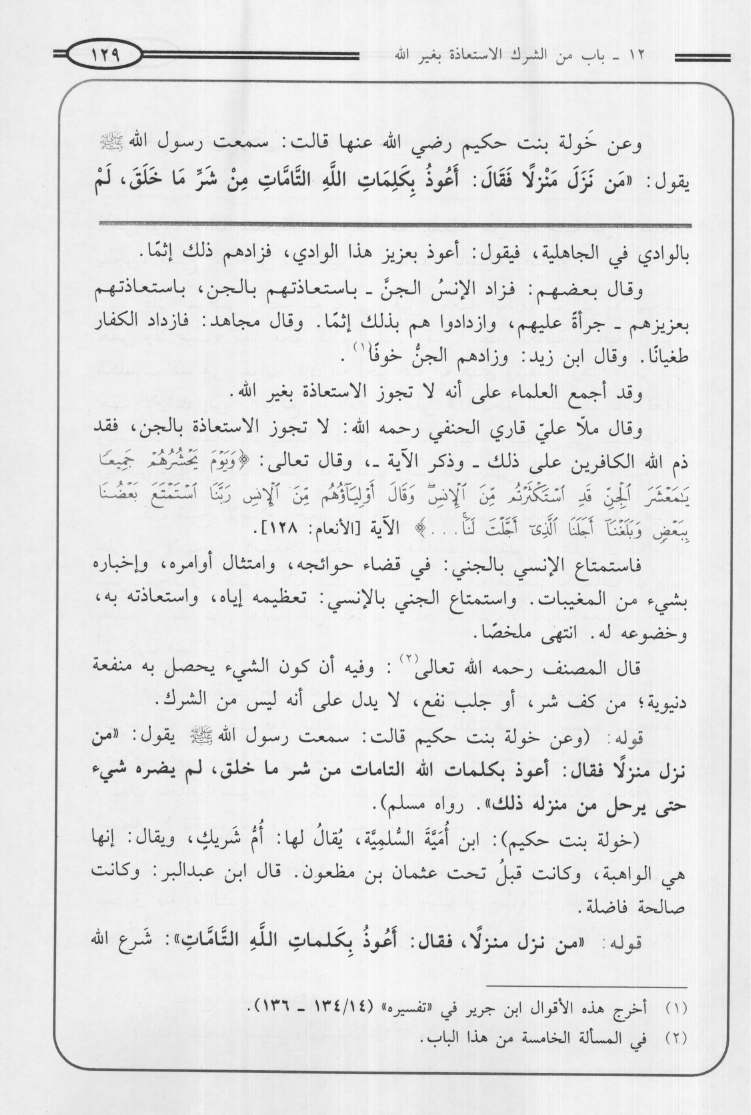 ١٢ ـ باب من الشرك الاستعاذة بغير الله
١٢٩
وعن خَولة بنت حكيم رضي الله عنها قالت: سمعت رسول الله ﷺ
يقول: «مَن نَزَلَ مَنْزلًا فَقَالَ: أَعُوذُ بِكَلِمَاتِ اللَّهِ التَّامَّاتِ مِنْ شَرِّ مَا خَلَقَ، لَمْ
بالوادي في الجاهلية، فيقول: أعوذ بعزيز هذا الوادي، فزادهم ذلك إثمًا.
وقال بعضهم: فزاد الإنسُ الجنَّ ـ باستعاذتهم بالجن، باستعاذتهم
بعزيزهم ـ جرأةً عليهم، وازدادوا هم بذلك إثمًا. وقال مجاهد: فازداد الكفار
طغيانًا. وقال ابن زيد: وزادهم الجنُّ خوفًا(١).
وقد أجمع العلماء على أنه لا تجوز الاستعاذة بغير الله.
وقال ملّا عليّ قاري الحنفي رحمه الله: لا تجوز الاستعاذة بالجن، فقد
ذم الله الكافرين على ذلك ـ وذكر الآية ـ، وقال تعالى: ﴿وَيَوْمَ يَحْشُرُهُمْ جَمِيعًا
يَٰمَعْشَرَ ٱلْجِنِّ قَدِ ٱسْتَكْثَرْتُم مِّنَ ٱلْإِنسِ وَقَالَ أَوْلِيَآؤُهُم مِّنَ ٱلْإِنسِ رَبَّنَا ٱسْتَمْتَعَ بَعْضُنَا
بِبَعْضٍ وَبَلَغْنَآ أَجَلَنَا ٱلَّذِىٓ أَجَّلْتَ لَنَا...﴾ الآية [الأنعام: ١٢٨].
فاستمتاع الإنسي بالجني: في قضاء حوائجه، وامتثال أوامره، وإخباره
بشيء من المغيبات. واستمتاع الجني بالإنسي: تعظيمه إياه، واستعاذته به،
وخضوعه له. انتهى ملخصًا.
قال المصنف رحمه الله تعالى(٢): وفيه أن كون الشيء يحصل به منفعة
دنيوية؛ من كف شر، أو جلب نفع، لا يدل على أنه ليس من الشرك.
قوله: (وعن خولة بنت حكيم قالت: سمعت رسول الله ﷺ يقول: «من
نزل منزلًا فقال: أعوذ بكلمات الله التامات من شر ما خلق، لم يضره شيء
حتى يرحل من منزله ذلك». رواه مسلم).
(خولة بنت حكيم): ابن أُمَيَّةَ السُّلمِيَّة، يُقالُ لها: أُمُّ شَريكٍ، ويقال: إنها
هي الواهبة، وكانت قبلُ تحت عثمان بن مظعون. قال ابن عبدالبر: وكانت
صالحة فاضلة.
قوله: «من نزل منزلًا، فقال: أَعُوذُ بِكَلماتِ اللَّهِ التَّامَّاتِ»: شَرع الله
(١) أخرج هذه الأقوال ابن جرير في «تفسيره» (١٣٤/١٤ ـ ١٣٦).
(٢) في المسألة الخامسة من هذا الباب.